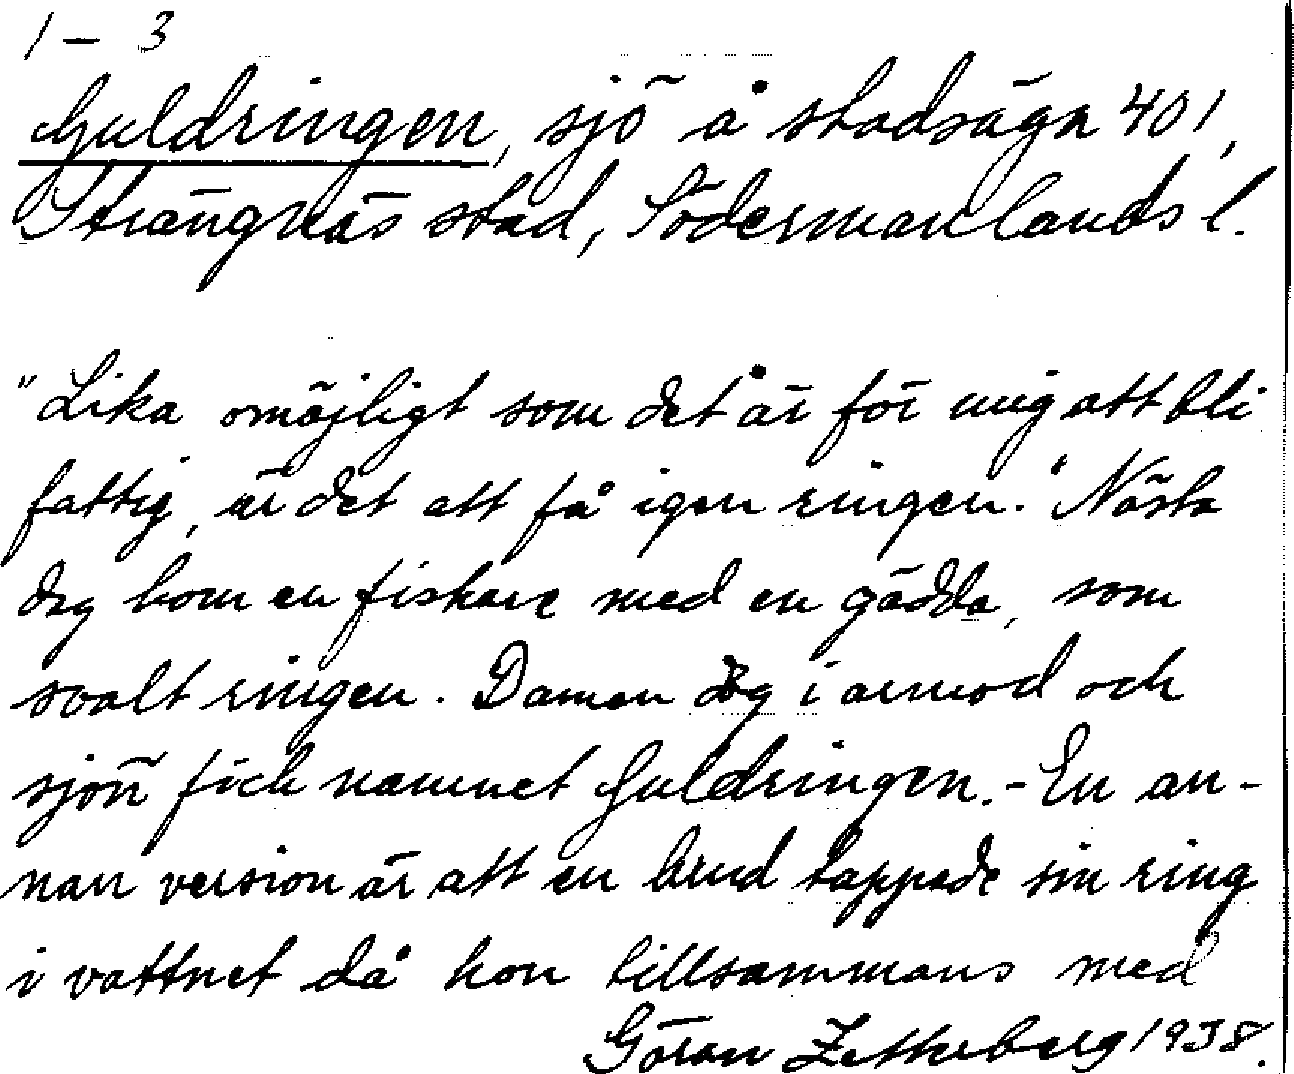 1 – 3
Guldringen, sjö å stadsäga 401,
Strängnäs stad, Södermanlands l.
"Lika omöjligt som det är för mig att bli
fattig, är det att få igen ringen." Nästa
dag kom en fiskare med en gädda, som
svalt ringen. Damen dog i armod och
sjön fick namnet Guldringen. - En an-
nan version är att en brud tappade sin ring
i vattnet då hon tillsammans med
Göran Zetterberg 1938.